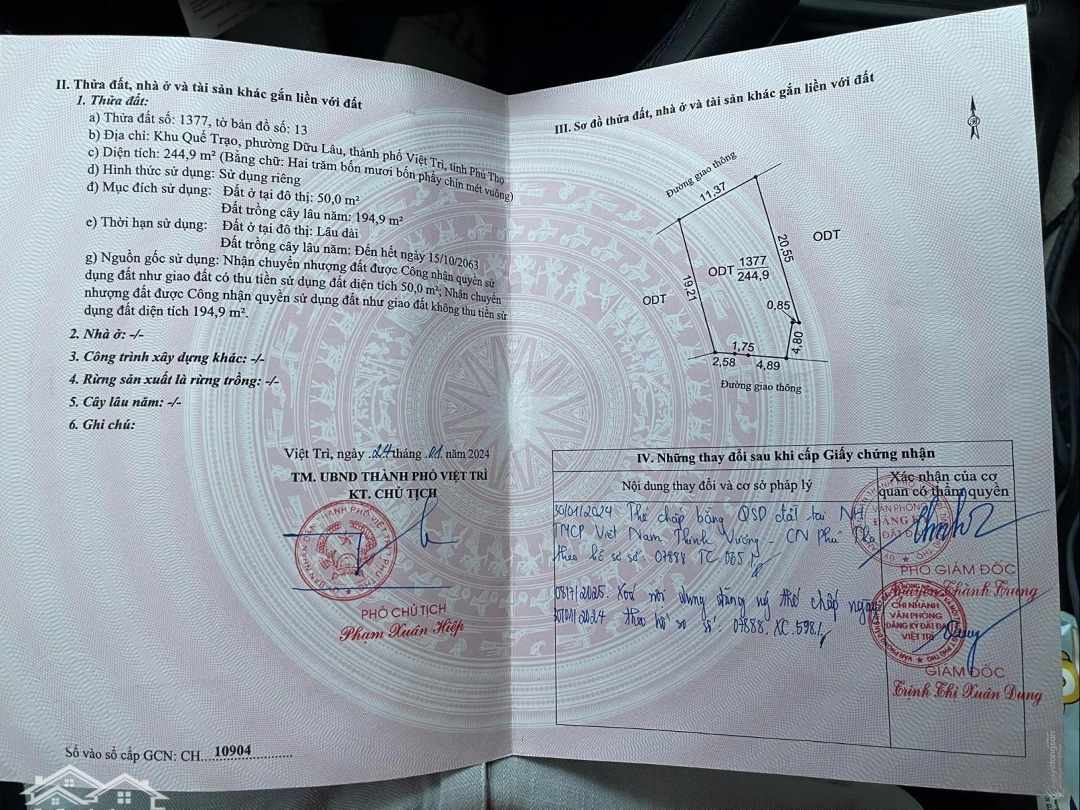 II. Thửa đất, nhà ở và tài sản khác gắn liền với đất
1. Thửa đất:
a) Thửa đất số: 1377, tờ bản đồ số: 13
b) Địa chỉ: Khu Quế Trạo, phường Dữu Lâu, thành phố Việt Trì, tỉnh Phú Thọ
c) Diện tích: 244,9 m² (Bằng chữ: Hai trăm bốn mươi bốn phẩy chín mét vuông)
d) Hình thức sử dụng: Sử dụng riêng
đ) Mục đích sử dụng: Đất ở tại đô thị: 50,0 m²
Đất trồng cây lâu năm: 194,9 m²
e) Thời hạn sử dụng: Đất ở tại đô thị: Lâu dài
Đất trồng cây lâu năm: Đến hết ngày 15/10/2063
g) Nguồn gốc sử dụng: Nhận chuyển nhượng đất được Công nhận quyền sử
dụng đất như giao đất có thu tiền sử dụng đất diện tích 50,0 m²; Nhận chuyển
nhượng đất được Công nhận quyền sử dụng đất như giao đất không thu tiền sử
dụng đất diện tích 194,9 m².
2. Nhà ở: -/-
3. Công trình xây dựng khác: -/-
4. Rừng sản xuất là rừng trồng: -/-
5. Cây lâu năm: -/-
6. Ghi chú:
Việt Trì, ngày 24 tháng 01 năm 2024
TM. UBND THÀNH PHỐ VIỆT TRÌ
KT. CHỦ TỊCH
PHÓ CHỦ TỊCH
Phạm Xuân Hiệp
Số vào sổ cấp GCN: CH....10904
III. Sơ đồ thửa đất, nhà ở và tài sản khác gắn liền với đất
Đường giao thông
11,37
ODT
20,55
ODT 1377
244,9
19,21
ODT
0,85
4,80
1,75
2,58
4,89
Đường giao thông
IV. Những thay đổi sau khi cấp Giấy chứng nhận
Nội dung thay đổi và cơ sở pháp lý
Xác nhận của cơ
quan có thẩm quyền
30/01/2024 Thế chấp bằng QSD đất tại NH
TMCP Việt Nam Thịnh Vượng - CN Phú Thọ
theo hồ sơ số: 07888.TC.065
VĂN PHÒNG
ĐĂNG KÝ
ĐẤT ĐAI
PHÓ GIÁM ĐỐC
Nguyễn Thành Trung
08/7/2025. Xoá nội dung đăng ký thế chấp ngày
30/01/2024 theo hồ sơ số: 07888.XC.598
CHI NHÁNH
VĂN PHÒNG
ĐĂNG KÝ ĐẤT ĐAI
VIỆT TRÌ
GIÁM ĐỐC
Trịnh Thị Xuân Dung